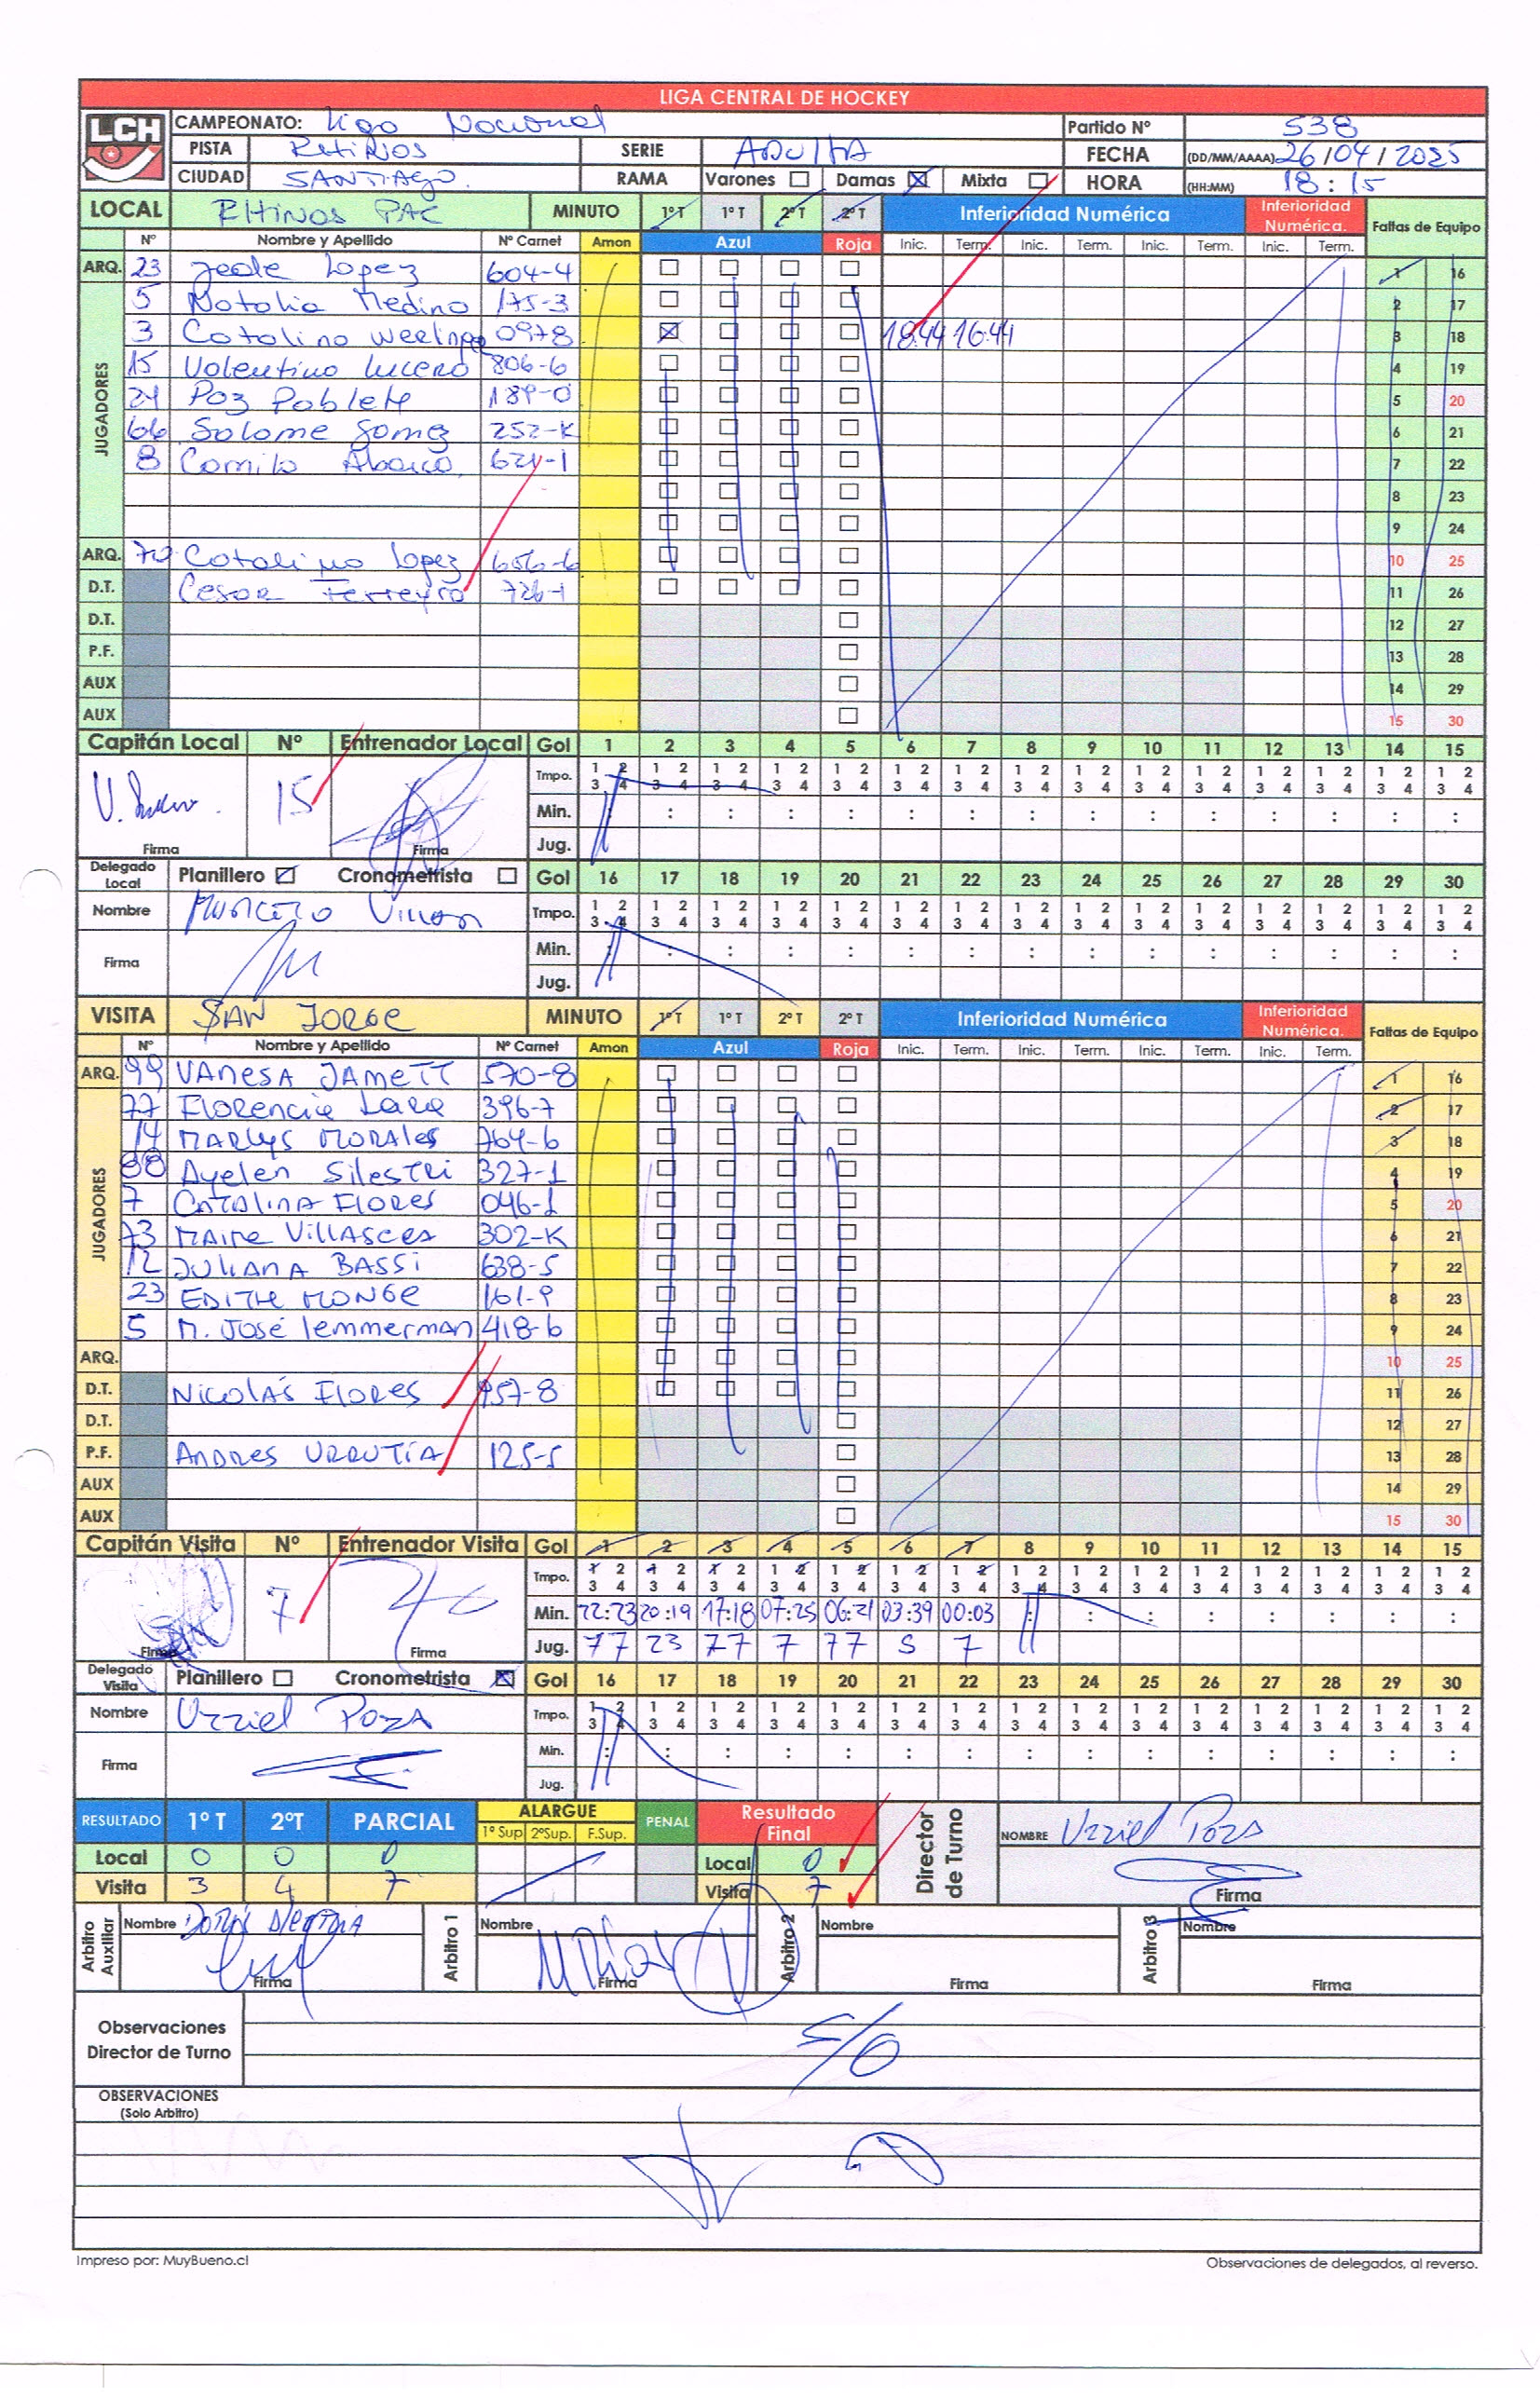 LIGA CENTRAL DE HOCKEY
LCH
CAMPEONATO: Liga Nacional
Partido Nº 538
PISTA RHINOS SERIE ADULTA FECHA (DD/MM/AAAA) 26/04/2025
CIUDAD SANTIAGO. RAMA Varones Damas Mixta HORA (HH:MM) 18:15
LOCAL RHINOS PAC MINUTO 1º T 1º T 2º T 2º T Inferioridad Numérica Inferioridad Numérica. Faltas de Equipo
Nº Nombre y Apellido Nº Carnet Amon Azul Roja Inic. Term. Inic. Term. Inic. Term. Inic. Term.
JUGADORES
ARQ. 23 Lopez 604-4 1 16
5 Natalia Medina 175-3 2 17
3 Catalina 0978 18:44 16:44 3 18
15 Valentina Lucero 806-6 4 19
21 Paz Poblete 189-0 5 20
66 Salome Gomez 252-K 6 21
8 Camila 621-1 7 22
8 23
9 24
ARQ. 70 Catalina Lopez 656-6 10 25
D.T. Cesar Ferreyra 726-1 11 26
D.T. 12 27
P.F. 13 28
AUX 14 29
AUX 15 30
Capitán Local Nº Entrenador Local Gol 1 2 3 4 5 6 7 8 9 10 11 12 13 14 15
Tmpo. 1 2 3 4
15 Min.
Firma Firma Jug.
Delegado Local Planillero Cronometrista Gol 16 17 18 19 20 21 22 23 24 25 26 27 28 29 30
Nombre Tmpo. 1 2 3 4
Firma Min.
Jug.
VISITA SAN JORGE MINUTO 1º T 1º T 2º T 2º T Inferioridad Numérica Inferioridad Numérica. Faltas de Equipo
Nº Nombre y Apellido Nº Carnet Amon Azul Roja Inic. Term. Inic. Term. Inic. Term. Inic. Term.
JUGADORES
ARQ. 99 VANESA JAMETT 570-8 1 16
77 FLORENCIA LARA 396-7 2 17
14 MARLYS MORALES 764-6 3 18
88 Ayelen SILESTRI 327-1 4 19
7 CATALINA FLORES 046-1 5 20
73 MAIRE VILLASCEA 302-K 6 21
12 JULIANA BASSI 638-5 7 22
23 EDITH MONGE 161-9 8 23
5 M. José lemmerman 418-6 9 24
ARQ. 10 25
D.T. NICOLÁS FLORES 957-8 11 26
D.T. 12 27
P.F. ANDRES URRUTIA 125-5 13 28
AUX 14 29
AUX 15 30
Capitán Visita Nº Entrenador Visita Gol 1 2 3 4 5 6 7 8 9 10 11 12 13 14 15
Tmpo. 1 2 3 4
7 Min. 22:23 20:19 17:18 07:25 06:21 03:39 00:03
Firma Firma Jug. 77 23 77 7 77 5 7
Delegado Visita Planillero Cronometrista Gol 16 17 18 19 20 21 22 23 24 25 26 27 28 29 30
Nombre Uzziel Poza Tmpo. 1 2 3 4
Firma Min.
Jug.
RESULTADO 1º T 2ºT PARCIAL ALARGUE 1º Sup 2ºSup. F.Sup. PENAL Resultado Final Director de Turno NOMBRE Uzziel Poza
Local 0 0 0 Local 0
Visita 3 4 7 Visita 7 Firma
Arbitro Auxiliar Nombre Arbitro 1 Nombre Arbitro 2 Nombre Arbitro 3 Nombre
Firma Firma Firma Firma
Observaciones
Director de Turno
S/O
OBSERVACIONES
(Solo Arbitro)
Impreso por: MuyBueno.cl
Observaciones de delegados, al reverso.